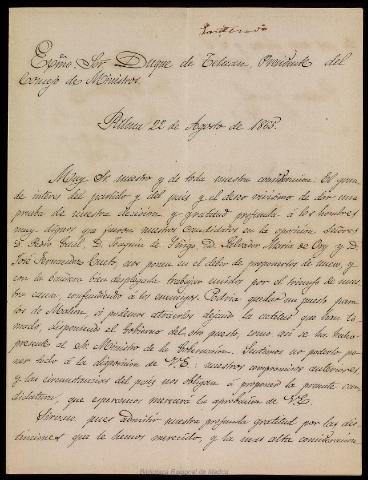 Exmo. Sr. Duque de Tetuan Presidente del
Consejo de Ministros.
22 de Agosto de 1865.
Muy Sr. nuestro y de toda nuestra consideracion. El gran
interes del partido y del país y el deseo vivísimo de dar una
prueba de nuestra decision y gratitud profunda á los hombres
muy dignos que fueron nuestros Candidatos en la oposicion Señores
D. Pedro D. Joaquin de D. Salvador Maria de Ory y D.
José Fernandez Cueto, nos ponen en el deber de proponerlos de nuevo, y
con la bandera bien desplegada trabajar unidos por el triunfo de nues-
tra causa, confundiendo á los enemigos. Podria quedar un puesto para
los de si podemos atraerlos dejando la que han to-
mado, disponiendo el Gobierno del otro puesto, como así se ha hecho
presente al Sr. Ministro de la Gobernacion. Sentimos no poderlo po-
ner todo á la disposicion de V.E.; nuestros compromisos anteriores
y las circunstancias del país nos obligan á proponer la presente can-
didatura, que esperamos merecerá la aprobacion de V.E.
Sírvase pues admitir nuestra profunda gratitud por las dis-
tinciones que le hemos merecido, y la mas alta consideracion
Biblioteca Regional de Madrid